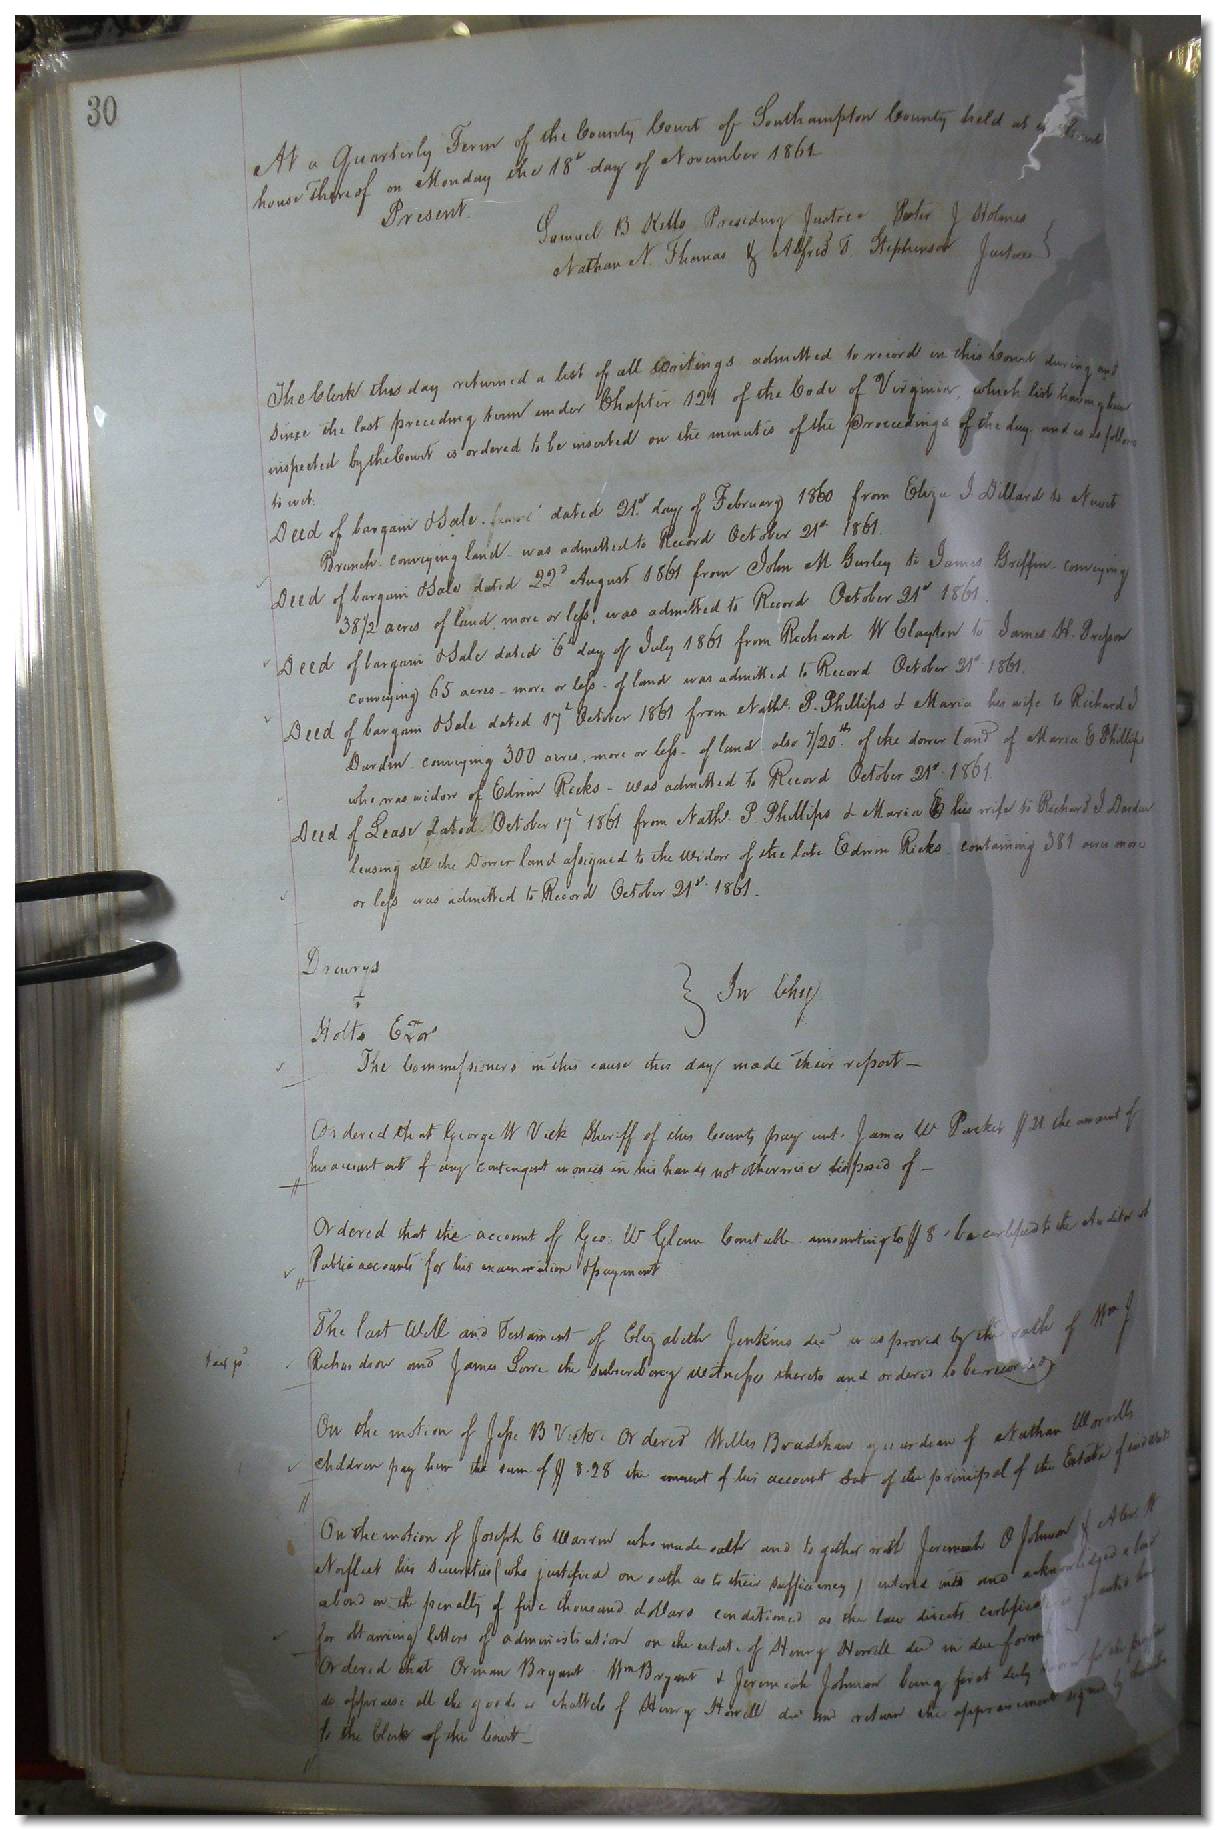 30
At a Quarterly Term of the County Court of Southampton County held at
house thereof on Monday the 18th day of November 1861
Present.
Samuel B Kello Presiding Justice Peter J Holmes
Nathan N. Thomas & Alfred T. Stephenson Justices }
The Clerk this day returned a list of all writings admitted to record in this Court during and
since the last preceding term under Chapter 121 of the Code of Virginia, which list having been
inspected by the Court is ordered to be inserted on the minutes of the proceedings of the day and is as follows
to wit.
Deed of bargain & Sale dated 21st day of February 1860 from Eliza J Dillard to Newit
Branch conveying land was admitted to Record October 21st 1861.
Deed of bargain & Sale dated 22d August 1861 from John M Gurley to James Griffin conveying
38 1/2 acres of land, more or less, was admitted to Record October 21st 1861.
Deed of bargain & Sale dated 6th day of July 1861 from Richard W Clayton to James H.
conveying 65 acres - more or less - of land was admitted to Record October 21st 1861.
Deed of bargain & Sale dated 17th October 1861 from Nathl. P. Phillips & Maria his wife to Richard J
Dardin conveying 300 acres, more or less - of land also 7/20th of the dower land of Maria E Phillips
who was widow of Edwin Ricks - was admitted to Record October 21st 1861.
Deed of Lease dated October 17th 1861 from Nathl. P Phillips & Maria E his wife to Richard J Dardin
leasing all the Dower land assigned to the widow of the late Edwin Ricks containing 381 acres more
or less was admitted to Record October 21st 1861.
Drewrys
} In Chy
Holts Exor
The Commissioners in this cause this day made their report -
Ordered that George W Vick Sheriff of this County pay unto James W Parker $21 the amount of
his account out of any contingent monies in his hands not otherwise disposed of -
Ordered that the account of Geo. W Glenn Constable amounting to $8 be certified to the Auditor of
Public accounts for his examination & payment
The last Will and Testament of Elizabeth Jenkins decd was proved by the oath of Wm J
tax pd
Richardson and James Lowe the subscribing witnesses thereto and ordered to be recorded
On the motion of Jesse B Vick Ordered Willis Bradshaw guardian of Nathan Worrells
children pay him the sum of $8.28 the amount of his account out of the principal of the Estate of
On the motion of Joseph E Warren who made oath and together with Jeremiah O Johnson & Alex W
Norfleet his securities (who justified on oath as to their sufficiency) entered into and acknowledged
a bond in the penalty of five thousand dollars conditioned as the law directs certificate is granted him
for obtaining letters of administration on the estate of Henry Howell decd in due form
Ordered that Orman Bryant Wm Bryant & Jeremiah Johnson being first duly sworn for the purpose
do appraise all the goods & chattels of Henry Howell decd and return the appraisement signed by
to the Clerk of the Court -